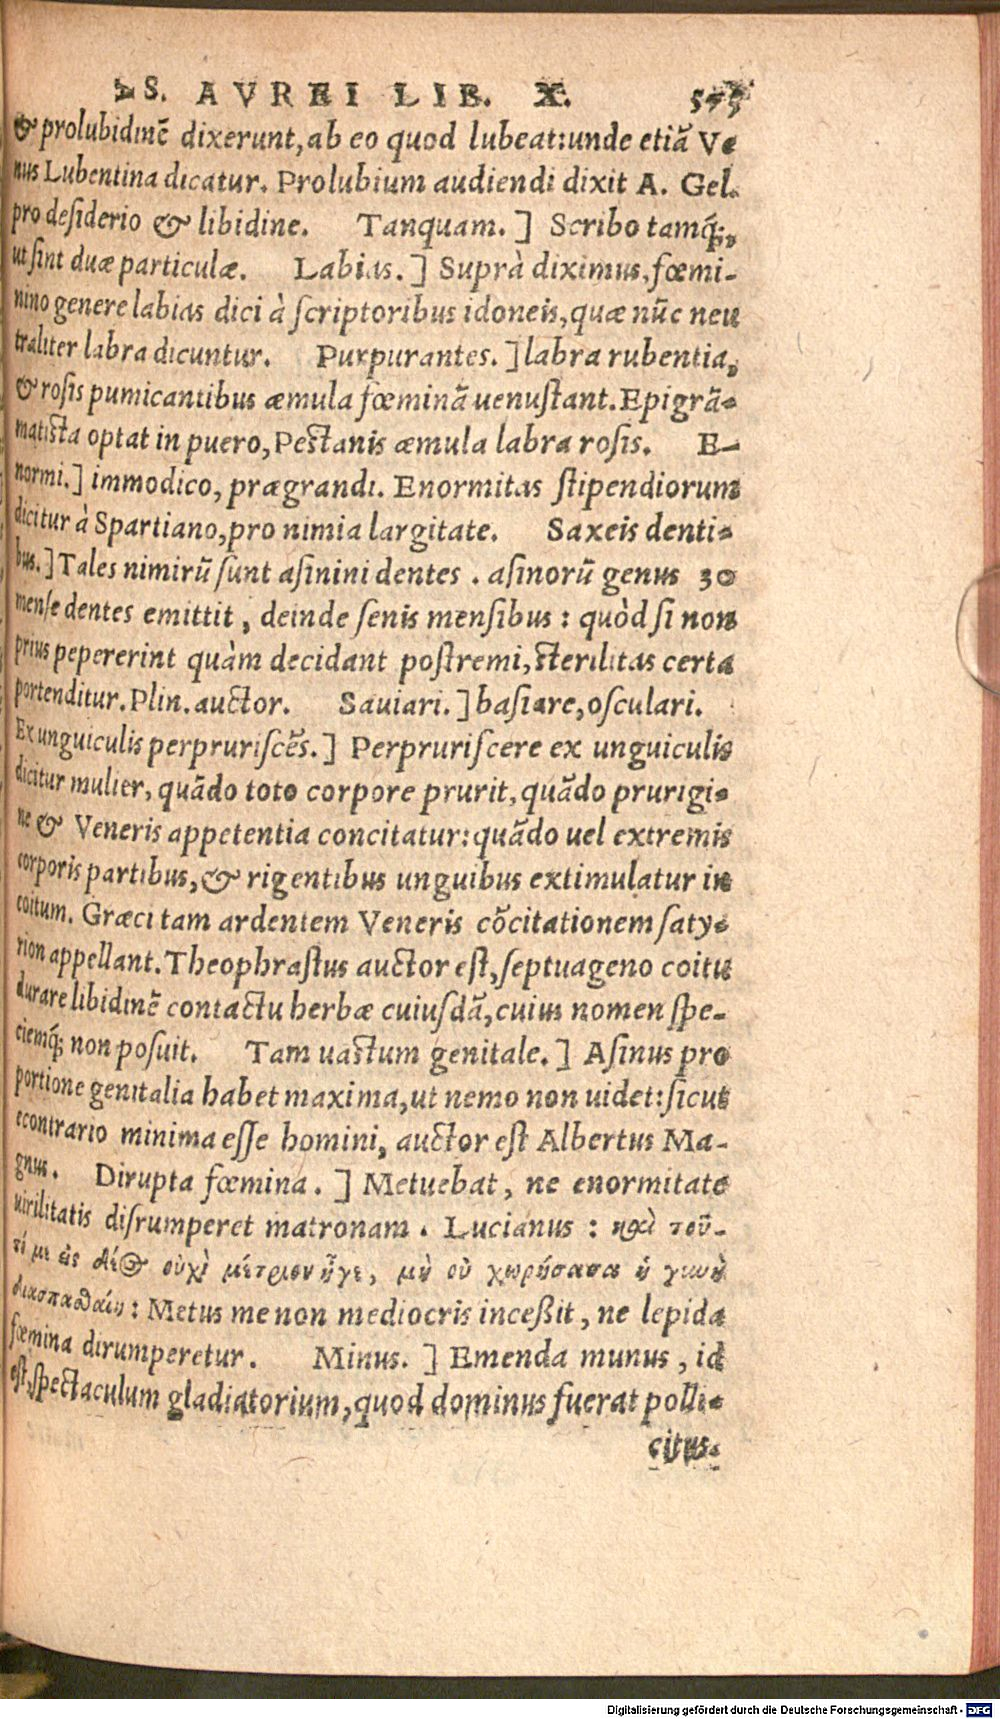 AS. AVREI LIB. X.
& prolubidinē dixerunt, ab eo quod lubeat: unde etiā Ve-
nus Lubentina dicatur. Prolubium audiendi dixit A. Gel.
pro desiderio & libidine. Tanquam.] Scribo tamq́;,
ut sint duæ particulæ. Labias.] Suprà diximus, fœmi-
nino genere labias dici à scriptoribus idoneis, quæ nūc neu
traliter labra dicuntur. Purpurantes.] labra rubentia,
& rosis pumicantibus æmula fœminā uenustant. Epigrā-
matista optat in puero, Pestanis æmula labra rosis. E-
normi.] immodico, prægrandi. Enormitas stipendiorum
dicitur à Spartiano, pro nimia largitate. Saxeis denti-
bus.] Tales nimirū sunt asinini dentes. asinorū genus 30
mense dentes emittit, deinde senis mensibus: quòd si non
prius pepererint quàm decidant postremi, sterilitas certa
portenditur. Plin. auctor. Sauiari.] basiare, osculari.
Ex unguiculis perpruriscēs.] Perpruriscere ex unguiculis
dicitur mulier, quādo toto corpore prurit, quādo prurigi-
ne & Veneris appetentia concitatur: quādo uel extremis
corporis partibus, & rigentibus unguibus extimulatur in
coitum. Græci tam ardentem Veneris cōcitationem saty-
rion appellant. Theophrastus auctor est, septuageno coitu
durare libidinē contactu herbæ cuiusdā, cuius nomen spe-
ciemq́; non posuit. Tam uastum genitale.] Asinus pro
portione genitalia habet maxima, ut nemo non uidet: sicut
econtrario minima esse homini, auctor est Albertus Ma-
gnus. Dirupta fœmina.] Metuebat, ne enormitate
uirilitatis disrumperet matronam. Lucianus: καὶ τοῦ-
τί με ἐς δέος οὐχὶ μέτριον ἦγε, μὴ οὐ χωρήσασα ἡ γυνὴ
διασπαθείη: Metus me non mediocris incessit, ne lepida
fœmina dirumperetur. Minus.] Emenda munus, id
est, spectaculum gladiatorium, quod dominus fuerat polli-
citus.
Digitalisierung gefördert durch die Deutsche Forschungsgemeinschaft - DFG